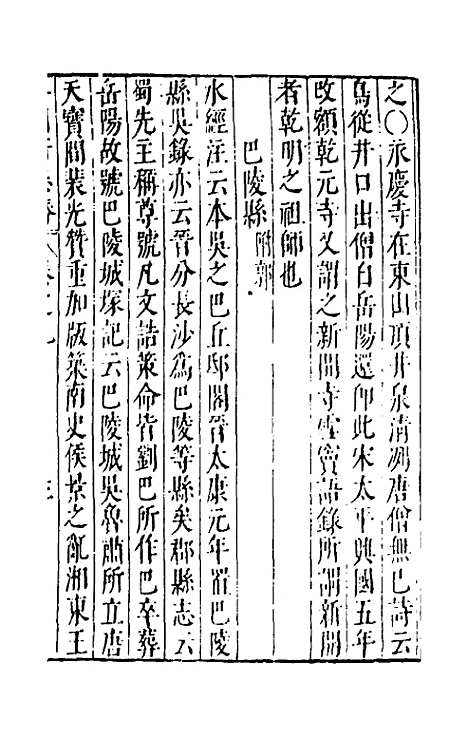 之〇永慶寺在東山頂井泉清洌唐僧無已詩云
鳥從井口出僧自岳陽還卽此宋太平興國五年
改額乾元寺又謂之新開寺雪竇語錄所謂新開
者乾明之祖師也
巴陵縣附郭
水經注云本吳之巴丘邸閣晉太康元年置巴陵
縣吳錄亦云晉分長沙爲巴陵等縣矣郡縣志云
蜀先主稱尊號凡文誥策命皆劉巴所作巴卒葬
岳陽故號巴陵城塚記云巴陵城吳魯肅所立唐
天寶間裴光贊重加版築南史侯景之亂湘東王